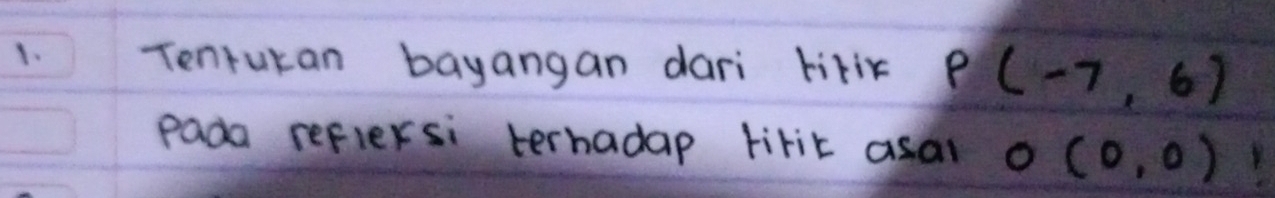 1. Tentukan bayangan dari titik P (-7, 6)
Pada refleksi terhadap titik asal O (0,0) !